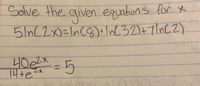 Solve the given equations for x
5ln(2x)=ln(8)+ln(32)+7ln(2)
40e^2x
14+e^2x
=5